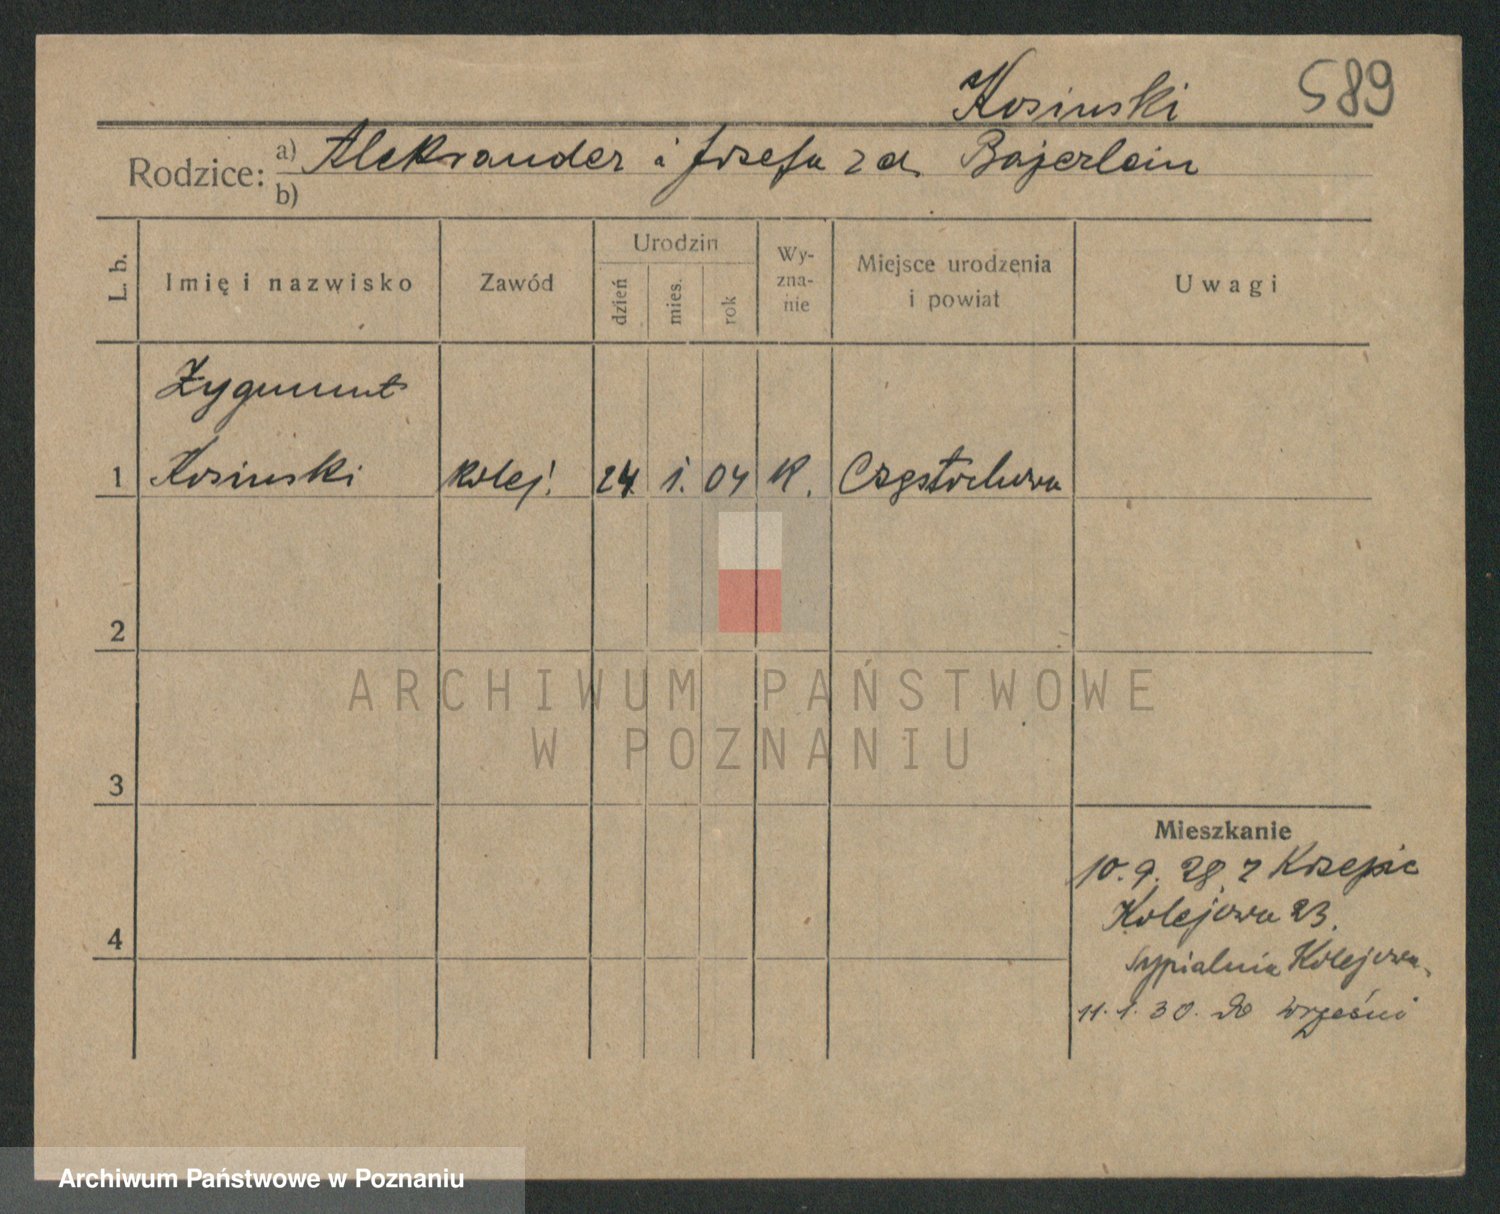 Kosinski 589
Rodzice: a) Aleksander i Józefa z d. Bajerlein
b)
L. b. Imię i nazwisko Zawód Urodzin dzień mies. rok Wy-zna-nie Miejsce urodzenia i powiat Uwagi
Zygmunt
1 Kosinski kolej. 24. 1. 04 K. Częstochowa
2
ARCHIWUM PAŃSTWOWE
W POZNANIU
3
Mieszkanie
10.9.28. z Krzepic
Kolejowa 23.
4
Sypialnia Kolejowa
11.1.30. do Wrześni
Archiwum Państwowe w Poznaniu